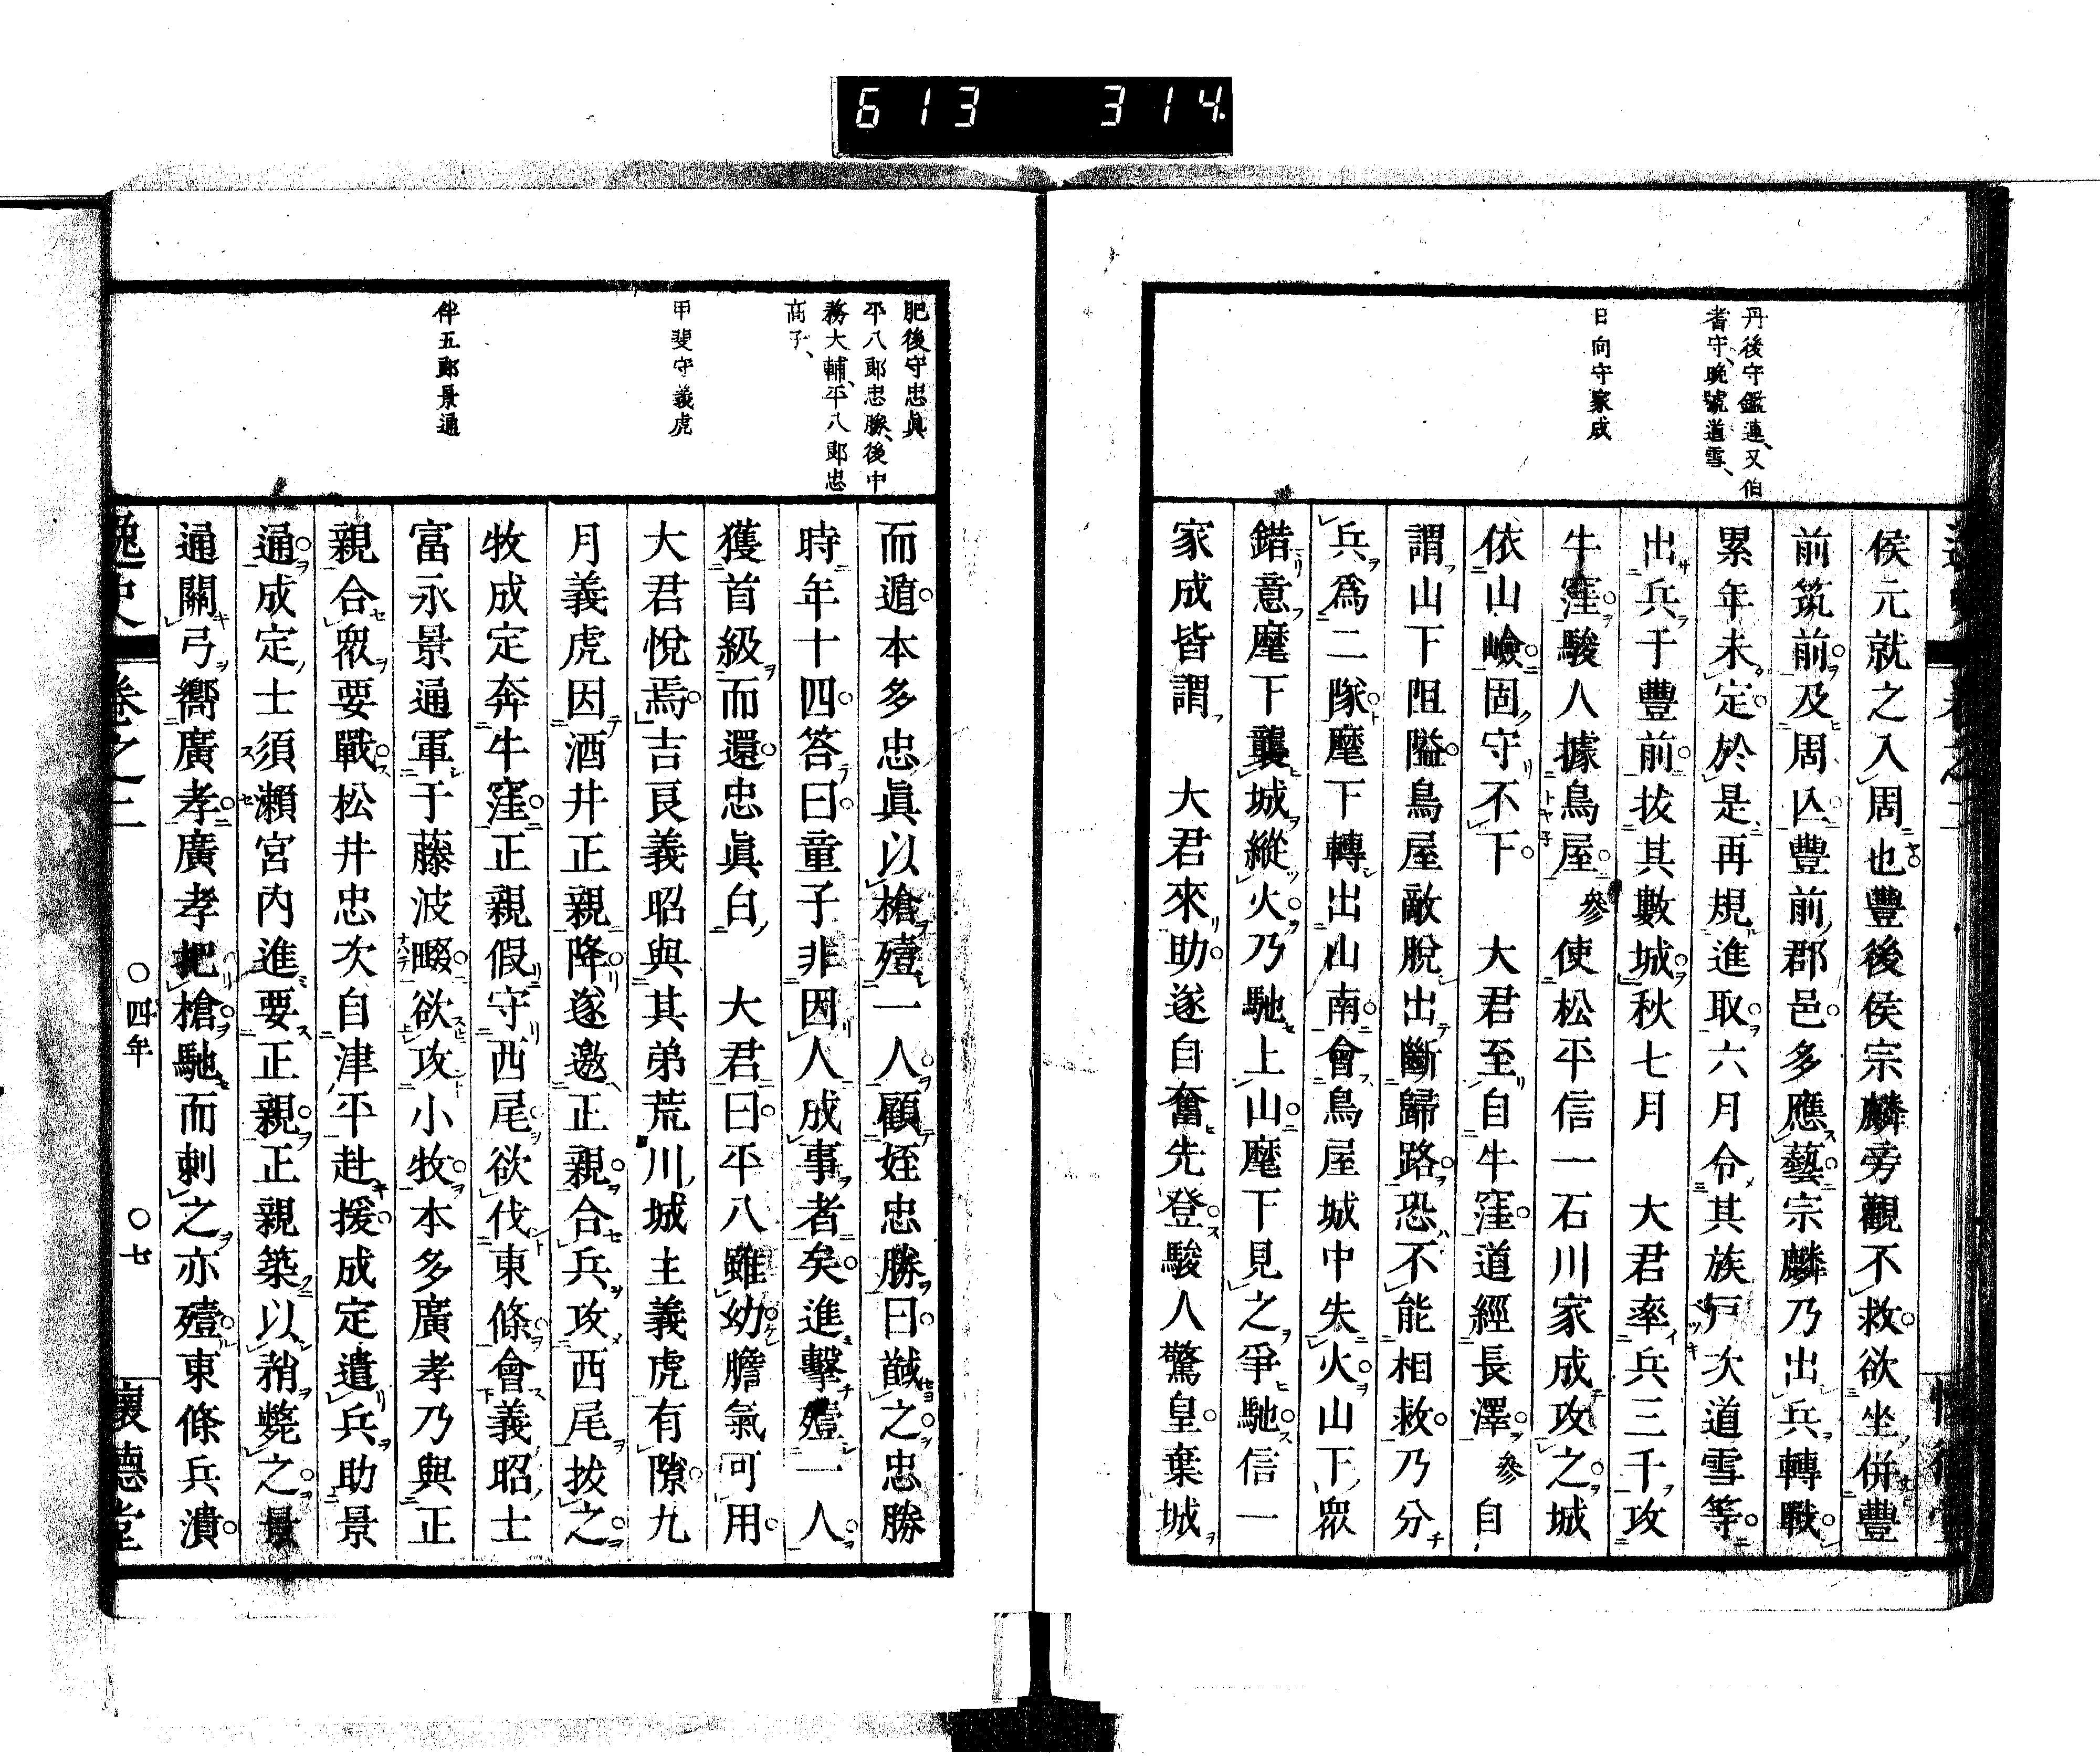 613 314
丹後守鑑連、又伯
耆守、晩號道雪、
日向守家成
侯元就之入周也豐後侯宗麟旁觀不救欲坐併豐
前筑前及周亾豐前郡邑多應藝宗麟乃出兵轉戰
累年未定於是再規進取六月令其族戸次道雪等
出兵于豐前拔其數城秋七月 大君率兵三千攻
牛窪駿人據鳥屋參使松平信一石川家成攻之城
依山嶮固守不下 大君至自牛窪道經長澤參自
謂山下阻隘鳥屋敵脫出斷歸路恐不能相救乃分
兵爲二隊麾下轉出山南會鳥屋城中失火山下衆
錯意麾下襲城縱火乃馳上山麾下見之爭馳信一
家成皆謂 大君來助遂自奮先登駿人驚皇棄城
肥後守忠眞
平八郎忠勝、後中
務大輔、平八郎忠
高子、
甲斐守義虎
伴五郎景通
而遁本多忠眞以槍殪一人顧姪忠勝曰馘之忠勝
時年十四答曰童子非因人成事者矣進擊殪一人
獲首級而還忠眞白 大君曰平八雖幼膽氣可用
大君悅焉吉良義昭與其弟荒川城主義虎有隙九
月義虎因酒井正親降遂邀正親合兵攻西尾拔之
牧成定奔牛窪正親假守西尾欲伐東條會義昭士
富永景通軍于藤波畷欲攻小牧本多廣孝乃與正
親合衆要戰松井忠次自津平赴援成定遣兵助景
通成定士須瀨宮內進要正親正親築以矟斃之景
通關弓嚮廣孝廣孝把槍馳而刺之亦殪東條兵潰
逸史 卷之二 ○四年 ○七 懷德堂